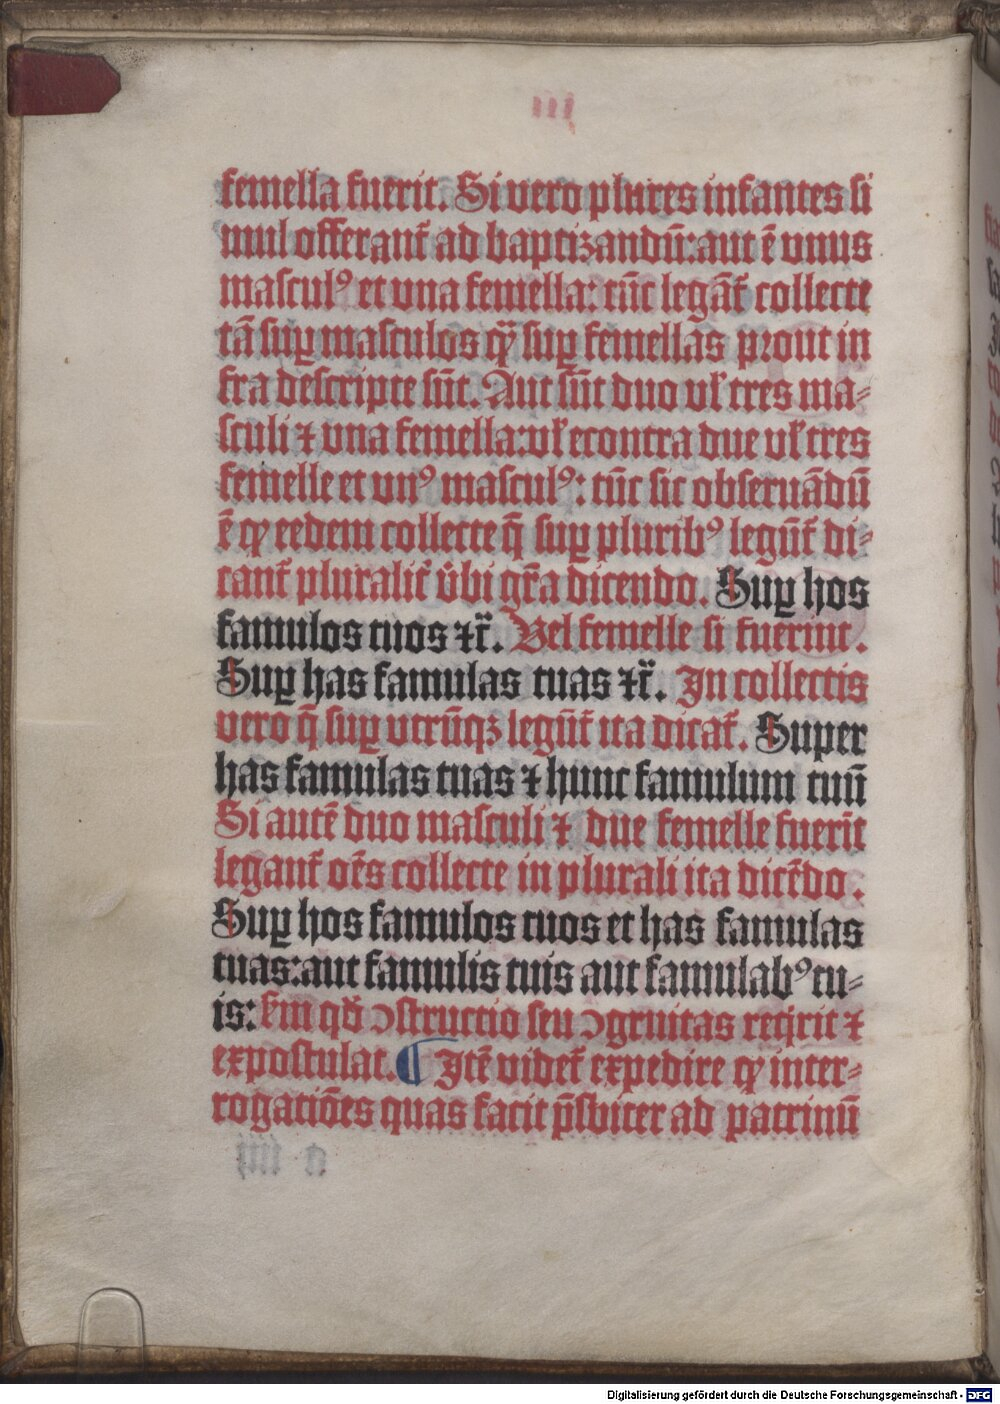 femella fuerit. Si vero plures infantes si
mul offerant᷑ ad baptizandū: aut ē vnus
mascul⁹ et vna femella: tūc legāt᷑ collecte
tā suꝑ masculos qͣꝫ suꝑ femellas prout in
fra descripte sūt. Aut sūt duo vl̓ tres ma⸗
sculi ⁊ vna femella: vl̓ econtra due vl̓ tres
femelle et vn⁹ mascul⁹: tūc sic obseruādū
ē ꝙ eedem collecte q̄ suꝑ plurib⁹ legūt᷑ di⸗
cant᷑ pluralit᷑ v̓bi gr̄a dicendo. Suꝑ hos
famulos tuos ⁊c̈. Vel femelle si fuerint.
Suꝑ has famulas tuas ⁊c̈. In collectis
vero q̄ suꝑ vtrūqꝫ legūt᷑ ita dicat᷑. Super
has famulas tuas ⁊ hunc famulum tuū
Si autē duo masculi ⁊ due femelle fuerīt
legant᷑ oēs collecte in plurali ita dicēdo.
Suꝑ hos famulos tuos et has famulas
tuas: aut famulis tuis aut famulab⁹ tu⸗
is: ẜm qd̓ ↄstructio seu ↄgruitas reqͥrit ⁊
expostulat. ¶ Itē videt᷑ expedire ꝙ inter⸗
rogatiōes quas facit p̄sbiter ad patrinū
Digitalisierung gefördert durch die Deutsche Forschungsgemeinschaft - DFG